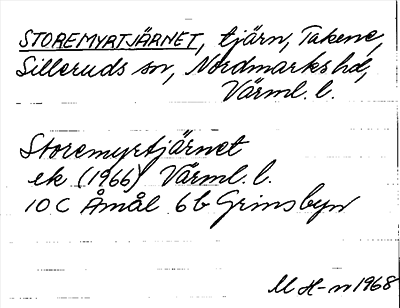 STOREMYRTJÄRNET, tjärn, Takene,
Silleruds sn, Nordmarks hd,
Värml. l.
Storemyrtjärnet
ek (1966) Värml. l.
10 C Åmål 6b Grinsbyn
M H-n 1968